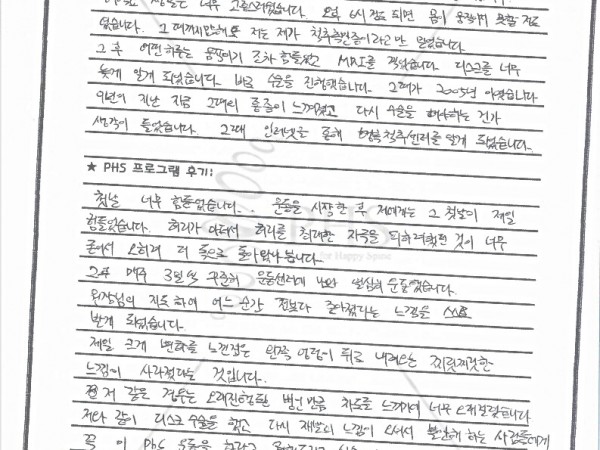 없습니다. 그때까지만해도 저는 제가 척추측만증이라고만 알았습니다
그 후 어떤하루는 움직이기 조차 힘들었고 MRI를 찍었습니다. 디스크를 너무
늦게 알게 되었습니다. 바로 수술을 진행했습니다. 그때가 2005년 이었습니다
9년이 지난 지금 그때의 통증이 느껴졌고 다시 수술을 해야하는 건가
생각이 들었습니다. 그때 인터넷을 통해 행복척추센터를 알게 되었습니다.
★ PHS 프로그램 후기:
첫날 너무 힘들었습니다... 운동을 시작한 후 저에게는 그 첫날이 제일
힘들었습니다. 허리가 아파서 허리를 최대한 자극을 피하려했던 것이 너무
굳어서 오히려 더 독으로 돌아왔나 봅니다.
그후 매주 3일씩 꾸준히 운동센터에 나와 열심히 운동했습니다.
원장님의 지도하에 어느 순간 전보다 좋아졌다는 느낌을
받게 되었습니다.
제일 크게 변화를 느낀점은 왼쪽 엉덩이 뒤로 내려오는 찌릿찌릿한
느낌이 사라졌다는 것입니다.
저 같은 경우는 오래진행된 병인만큼 차도를 느끼기에 너무 오래걸렸습니다
저와 같이 디스크 수술을 했고 다시 재발의 느낌이 오셔서 불안해 하는 사람들에게
꼭 이 PHS 운동을
for Happy Spine